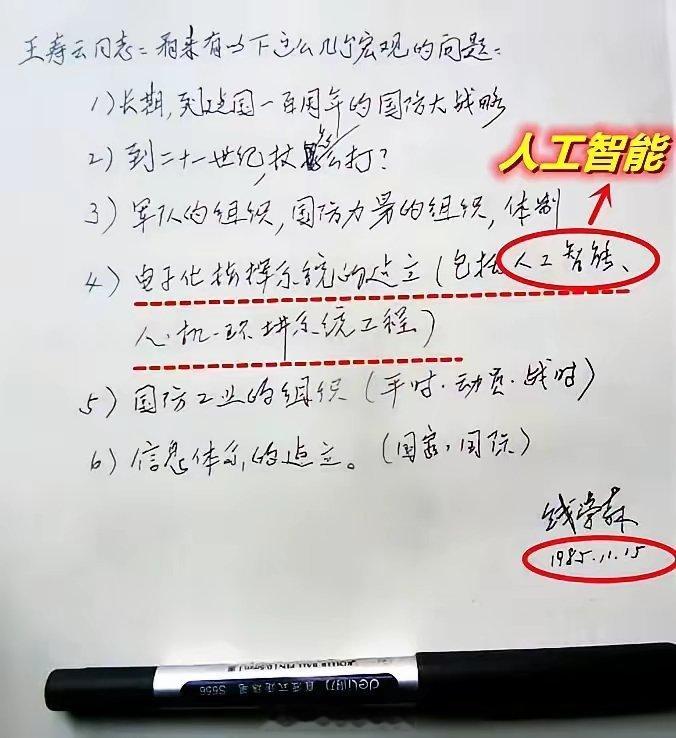 王寿云同志：看来有以下这么几个宏观的问题：
1）长期，到建国一百周年的国防大战略
2）到二十一世纪，仗怎么打？
人工智能
3）军队的组织，国防力量的组织，体制
4）电子化指挥系统的建立（包括人工智能、
人-机-环境系统工程）
5）国防工业的组织（平时·动员·战时）
6）信息体系的建立。（国家，国际）
钱学森
1985.11.15
deli得力 直液式走珠笔 S656